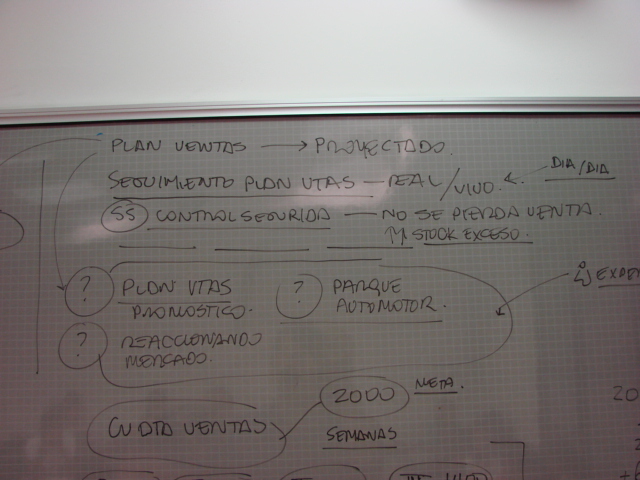 PLAN VENTAS → PROYECTADO.
SEGUIMIENTO PLAN VTAS — REAL/VIVO. DIA/DIA
SS CONTROL SEGURIDA — NO SE PIERDA VENTA.
STOCK EXCESO.
? PLAN VTAS ? PARQUE
PRONOSTICO. AUTOMOTOR.
? REACCIONANDO
MERCADO.
2000 META.
CUOTA VENTAS
SEMANAS